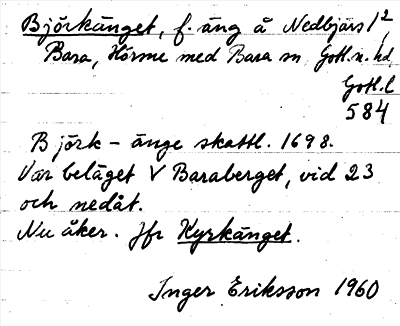 Björkänget, f. äng å Nedbjärs 1²,
Bara, Hörsne med Bara sn Gotl. n. hd,
Gotl. l
584
Björk-änge skattl. 1698.
Var beläget V Baraberget, vid 23
och nedåt.
Nu åker. Jfr Kyrkänget.
Inger Eriksson 1960